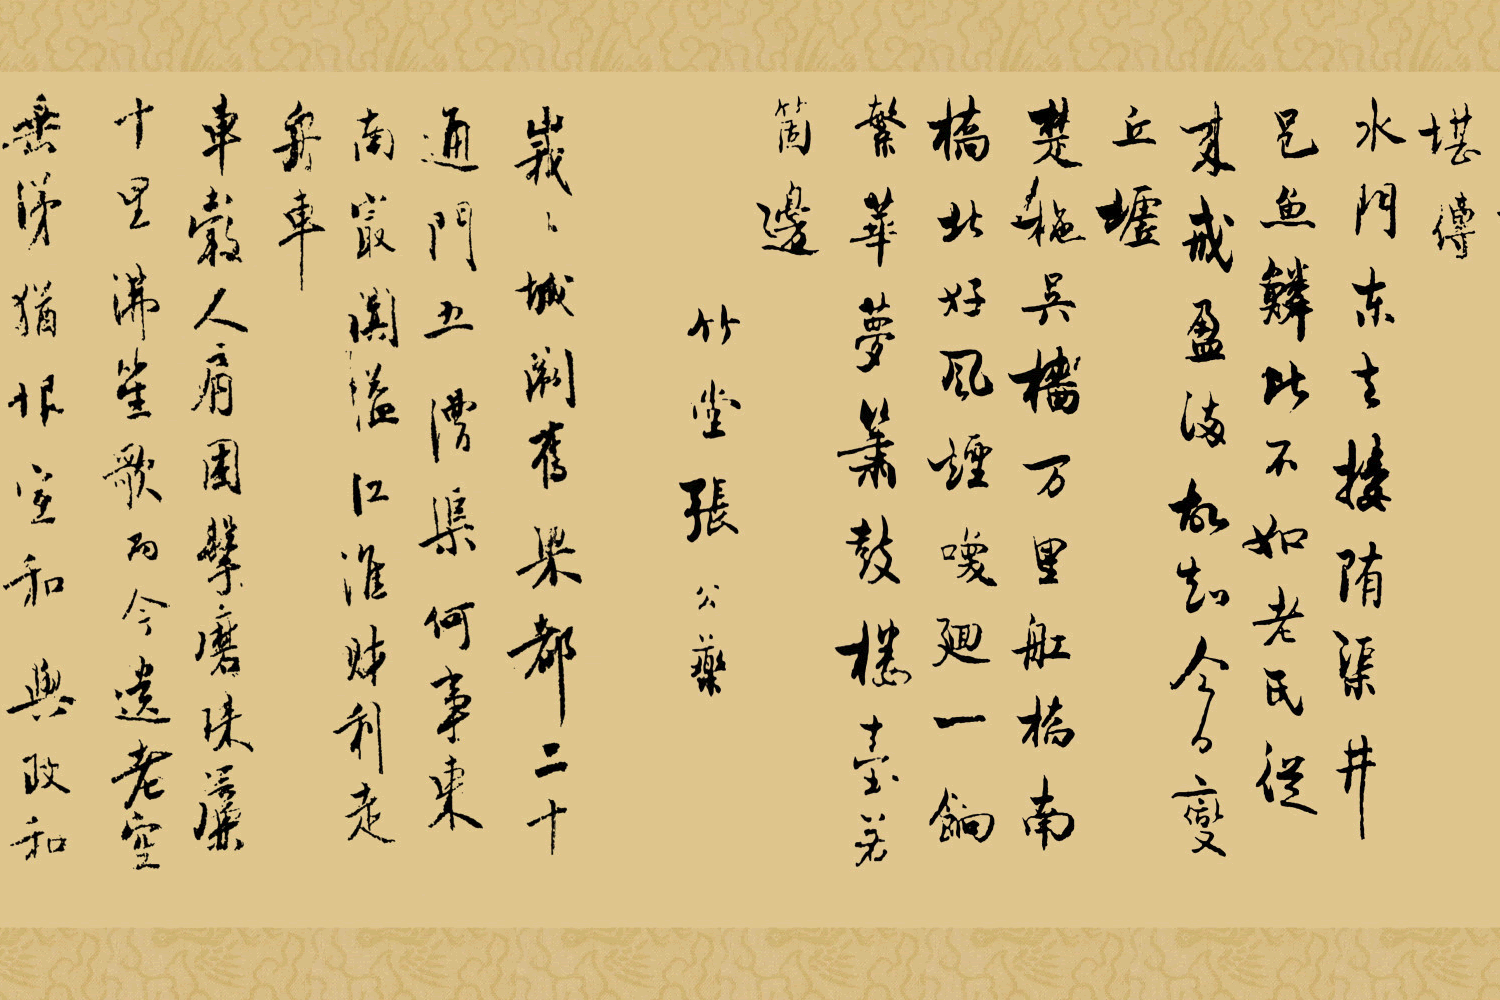 堪傳
水門東去接隋渠井
邑魚鱗比不如老氏從
來戒盈滿故知今日變
丘墟
楚柂吳檣万里舡橋南
橋北好風煙喚廻一餉
繁華夢簫鼓樓臺若
箇邊
竹堂張公藥
峩々城闕舊梁都二十
通門五漕渠何事東
南最闐溢江淮財利走
舟車
車轂人肩困擊磨珠簾
十里沸笙歌而今遺老空
垂涕猶恨宣和與政和